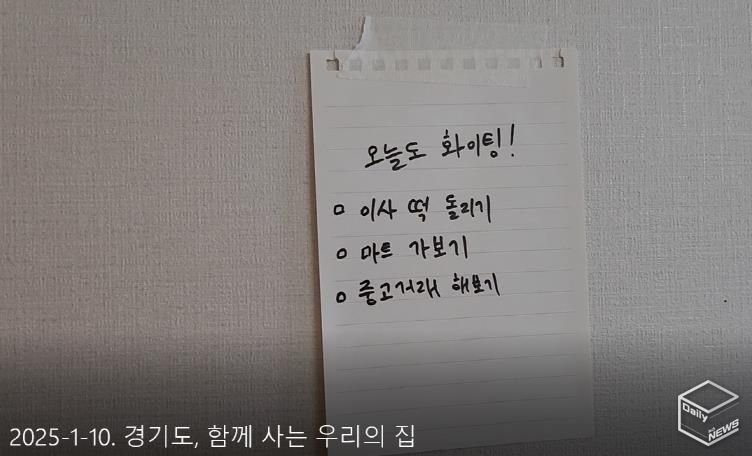 오늘도 화이팅!
□ 이사 떡 돌리기
o 마트 가보기
o 중고거래 해보기
2025-1-10. 경기도, 함께 사는 우리의 집
Daily
NEWS